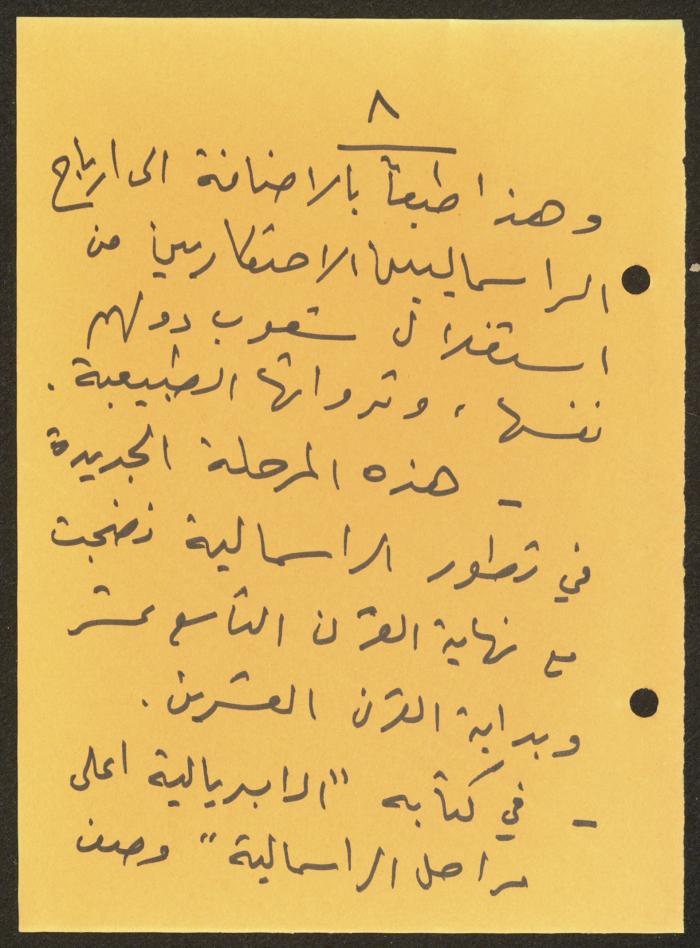 ٨
وهذا طبعاً بالاضافة الى ارباح
الراسماليين الاحتكاريين من
استغلال شعوب دولهم
نفسها ، وثرواتها الطبيعية .
- هذه المرحلة الجديدة
في تطور الراسمالية نضجت
مع نهاية القرن التاسع عشر
وبداية القرن العشرين .
- في كتابه "الامبريالية اعلى
مراحل الراسمالية" وصف